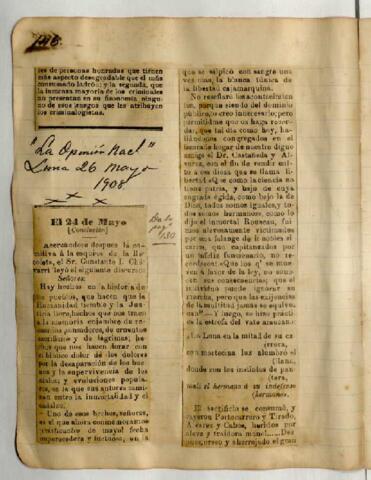 196.
res de personas honradas que tienen
más aspecto desagradable que el más
consumado ladrón; y la segunda, que
la inmensa mayoría de los criminales
no presentan en su fisonomía ningu-
no de esos rasgos que les atribuyen
los criminalogistas.
"La Opinión Nacl"
Lima 26 Mayo
1908
El 24 de Mayo
(Conclusión)
Acercándose después la co-
mitiva á la esquina de la Re-
coleta, el Sr. Constante I.
varri leyó el siguiente discurso
Señores:
Hay hechos en la historia de
los pueblos, que hacen que la
Humanidad tiemble y la Justi-
cia llore, hechos que nos traen
á la memoria
de cruentos
sacrificios y de lágrimas; he-
chos que nos hacen
con
el
dolor de los dolores
por la desaparición de los hom-
bres y la supervivencia de los
ideales; y evoluciones popula-
res, en las que sus autores cami-
nan entre la inmortalidad y el
Uno de esos hechos, señores,
es el que ahora conmemoramos
de mayo! fecha
y luctuosa, en la
De la
pag.
180
que se salpicó con sangre una
vez más, la blanca túnica de
la libertad cajamarquina.
No reseñaré los acontecimien-
tos, porque siendo del dominio
público, lo creo innecesario; pero
permitidme que os haga recor-
dar, que tal día como hoy, ha-
llándonos congregados en el
honrado hogar de nuestro digno
amigo el Dr. Castañeda y Al-
varez, con el fin de rendir culto
á esa diosa que se llama li-
bertad «Que como la ciencia no
tiene patria, y bajo de cuya
sagrada égida, como bajo la de
Dios, todos somos iguales, y to-
dos somos hermanos, como lo
dijo el inmortal Rouseau, fui-
mos alevosamente víctimas
por una falange de
que capitaneados por
un
funcionario, no re-
cordaron: «Que los
á favor de la ley, no somos
con sus consecuencias; que el
individuo puede ignorar su
suerte, pero que las exigencias
de la multitud jamás se equivo-
can"—Y luego, se hizo prácti-
ca la estrofa del vate araucano
La Luna en la mitad de su ca-
(rrera,
con mortecina luz alumbró el
(llano,
donde con los instintos de pan-
(tera,
mató el hermano á su indefenso
(hermano.
El sacrificio se consumó, y
cayeron Portocarrero y Tirado,
Alvarez y Cabos, heridos por
aleve y traidora mano!
pués, preso y aherrojado el gran